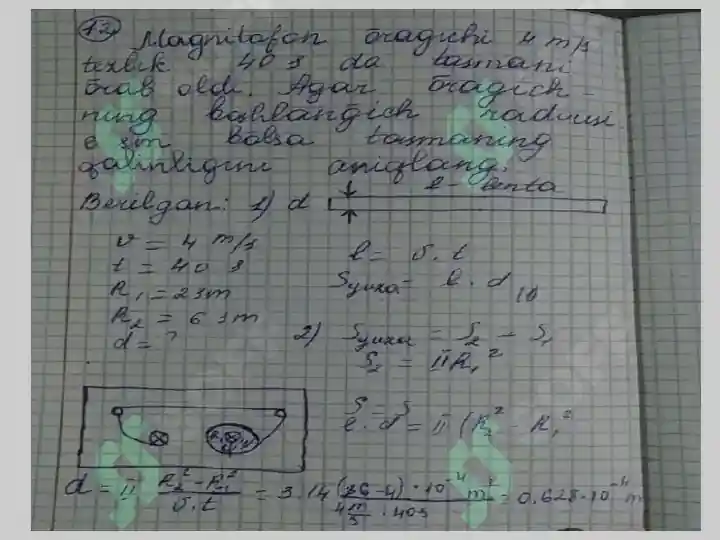 12. Magnitafon oragichi 4 m/s
tezlik 40 s da tasmani
örab oldi. Agar öragich -
ning boshlangich radiusi
6 sm bolsa tasmaning
qalinligini aniqlang.
Berilgan: 1) d l - lenta
v = 4 m/s
t = 40 s
R₁ = 2 sm
R₂ = 6 sm
d = ?
l = υ · t
S yuza = l · d
2) S yuza = S₂ - S₁
S₂ = πR₁²
S = S
l · d = π (R₂² - R₁²
d = π (R₂² - R₁²)/(υ · t) = 3.14 (36-4) · 10⁻⁴ m²/(4 m/s · 40s) = 0.628 · 10⁻⁴ m